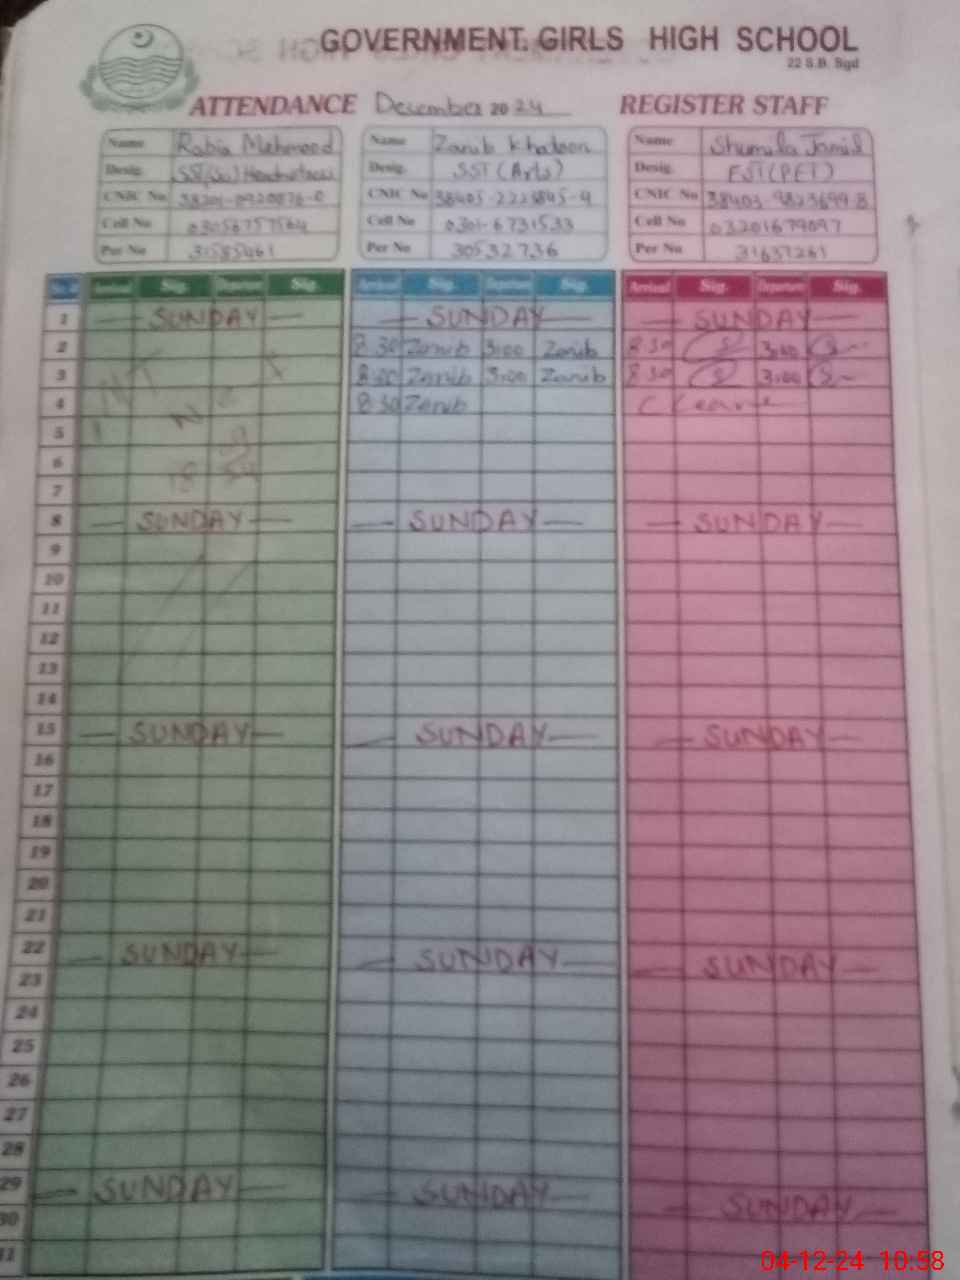 GOVERNMENT GIRLS HIGH SCHOOL
22 S.B. Sgd
ATTENDANCE Desember 2024 REGISTER STAFF
Name Rabia Mehmood Name Zanib Khatoon Name Shumila Jamil
Desig. Desig. SST (Arts) Desig. EST(PET)
CNIC No CNIC No 38405-2223845-4 CNIC No 38403
Cell No 03056757564 Cell No 0301-6731533 Cell No 03201679097
Per No 31585461 Per No 30532736 Per No 31637261
Arrival Sig. Departure Sig. Arrival Sig. Departure Sig. Arrival Sig. Departure Sig.
1 — SUNDAY — — SUNDAY — — SUNDAY —
2 8:30 Zanib 3:00 Zanib 8:30 3:00
3 8:00 Zanib 3:00 Zanib 8:30 3:00
4 8:30 Zanib C Leave
5
6
7
8 — SUNDAY — — SUNDAY — — SUNDAY —
9
10
11
12
13
14
15 — SUNDAY — — SUNDAY — — SUNDAY —
16
17
18
19
20
21
22 — SUNDAY — — SUNDAY — — SUNDAY —
23
24
25
26
27
28
29 — SUNDAY — — SUNDAY — — SUNDAY —
30
31
04-12-24 10:58